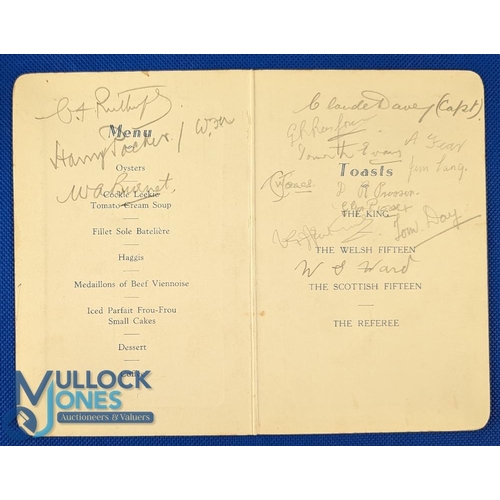 Menu
Harry Packer / W.
Oysters
Cockie Leekie
Tomato Cream Soup
Fillet Sole Batelière
Haggis
Medaillons of Beef Viennoise
Iced Parfait Frou-Frou
Small Cakes
Dessert
MULLOCK
JONES
Auctioneers & Valuers
Claude Davey (Capt).
Toasts
Jim Lang.
D R Prosser.
THE KING
Tom Day
THE WELSH FIFTEEN
W S Ward
THE SCOTTISH FIFTEEN
THE REFEREE